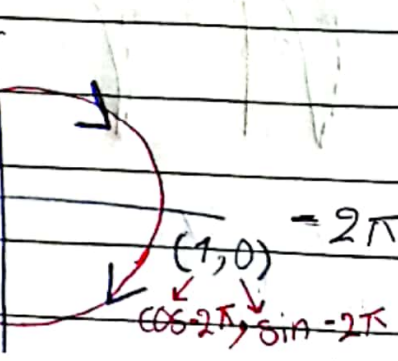 -2π
(1,0)
cos-2π, sin-2π